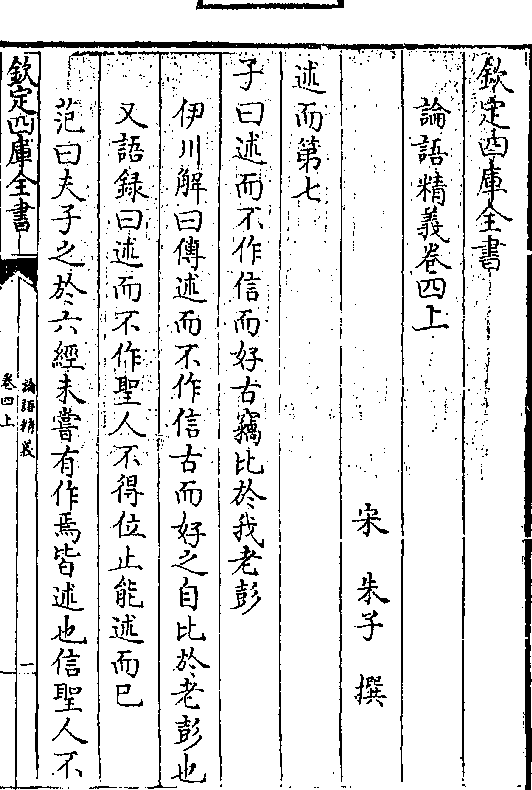 欽定四庫全書
論語精義卷四上
宋 朱子 撰
述而第七
子曰述而不作信而好古竊比於我老彭
伊川解曰傳述而不作信古而好之自比於老彭也
又語録曰述而不作聖人不得位止能述而已
范曰夫子之於六經未嘗有作焉皆述也信聖人不
欽定四庫全書
論語精義
卷四上
一